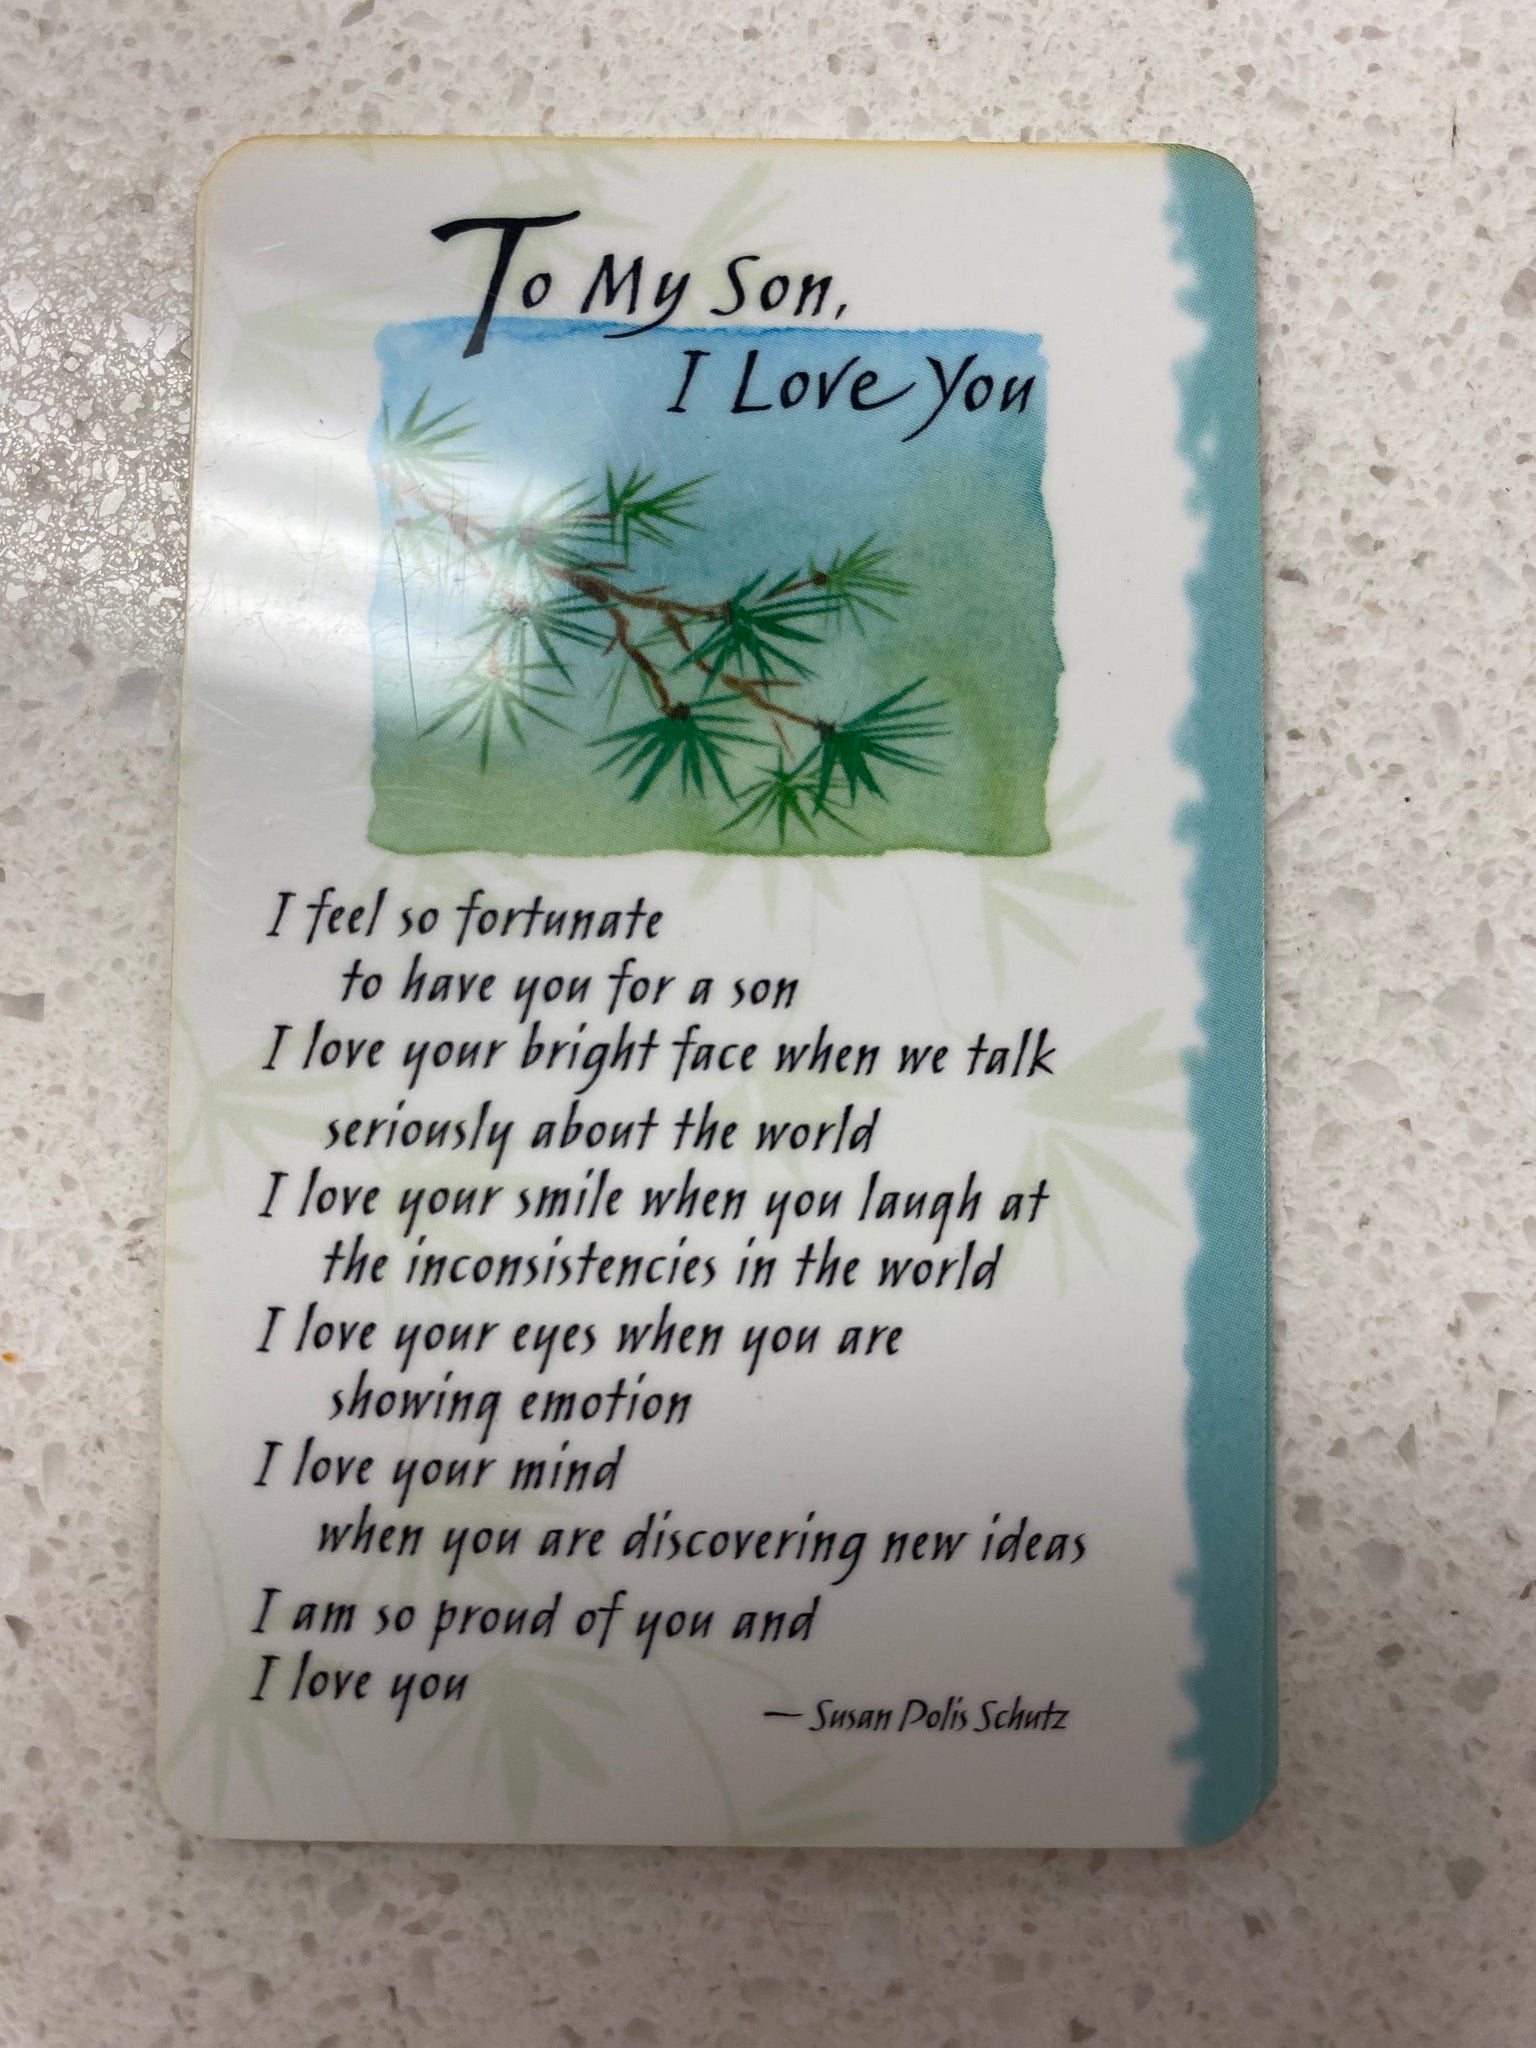 To My Son,
I Love You
I feel so fortunate
to have you for a son
I love your bright face when we talk
seriously about the world
I love your smile when you laugh at
the inconsistencies in the world
I love your eyes when you are
showing emotion
I love your mind
when you are discovering new ideas
I am so proud of you and
I love you
— Susan Polis Schutz